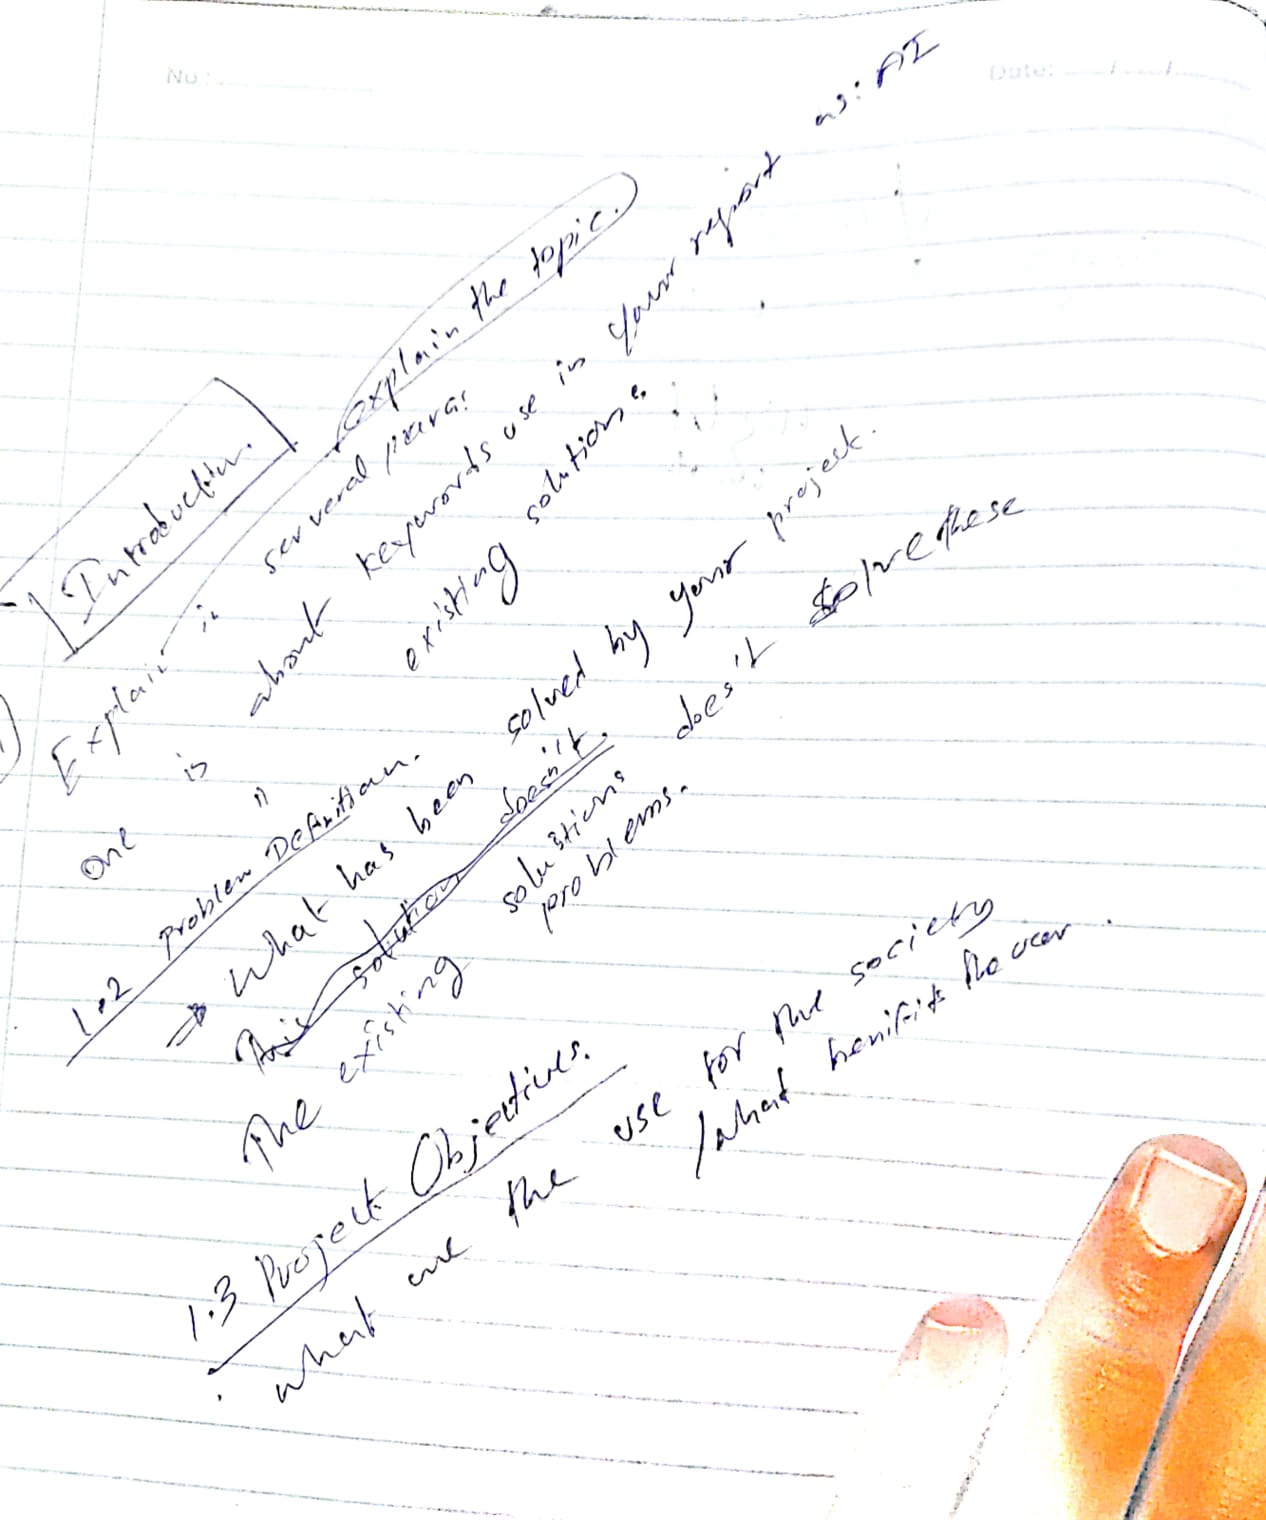 No:
Date: / /
1 Introduction.
explain the topic.
Explain in serveral para:
one is about keywords use in your report as: AI
" existing solutions.
1.2 problem Definition.
⇒ what has been solved by your project.
This solution does't.
The existing solustions does't solve these
problems.
1.3 Project Objectives.
. what are the use for the society
/what benifits the user.